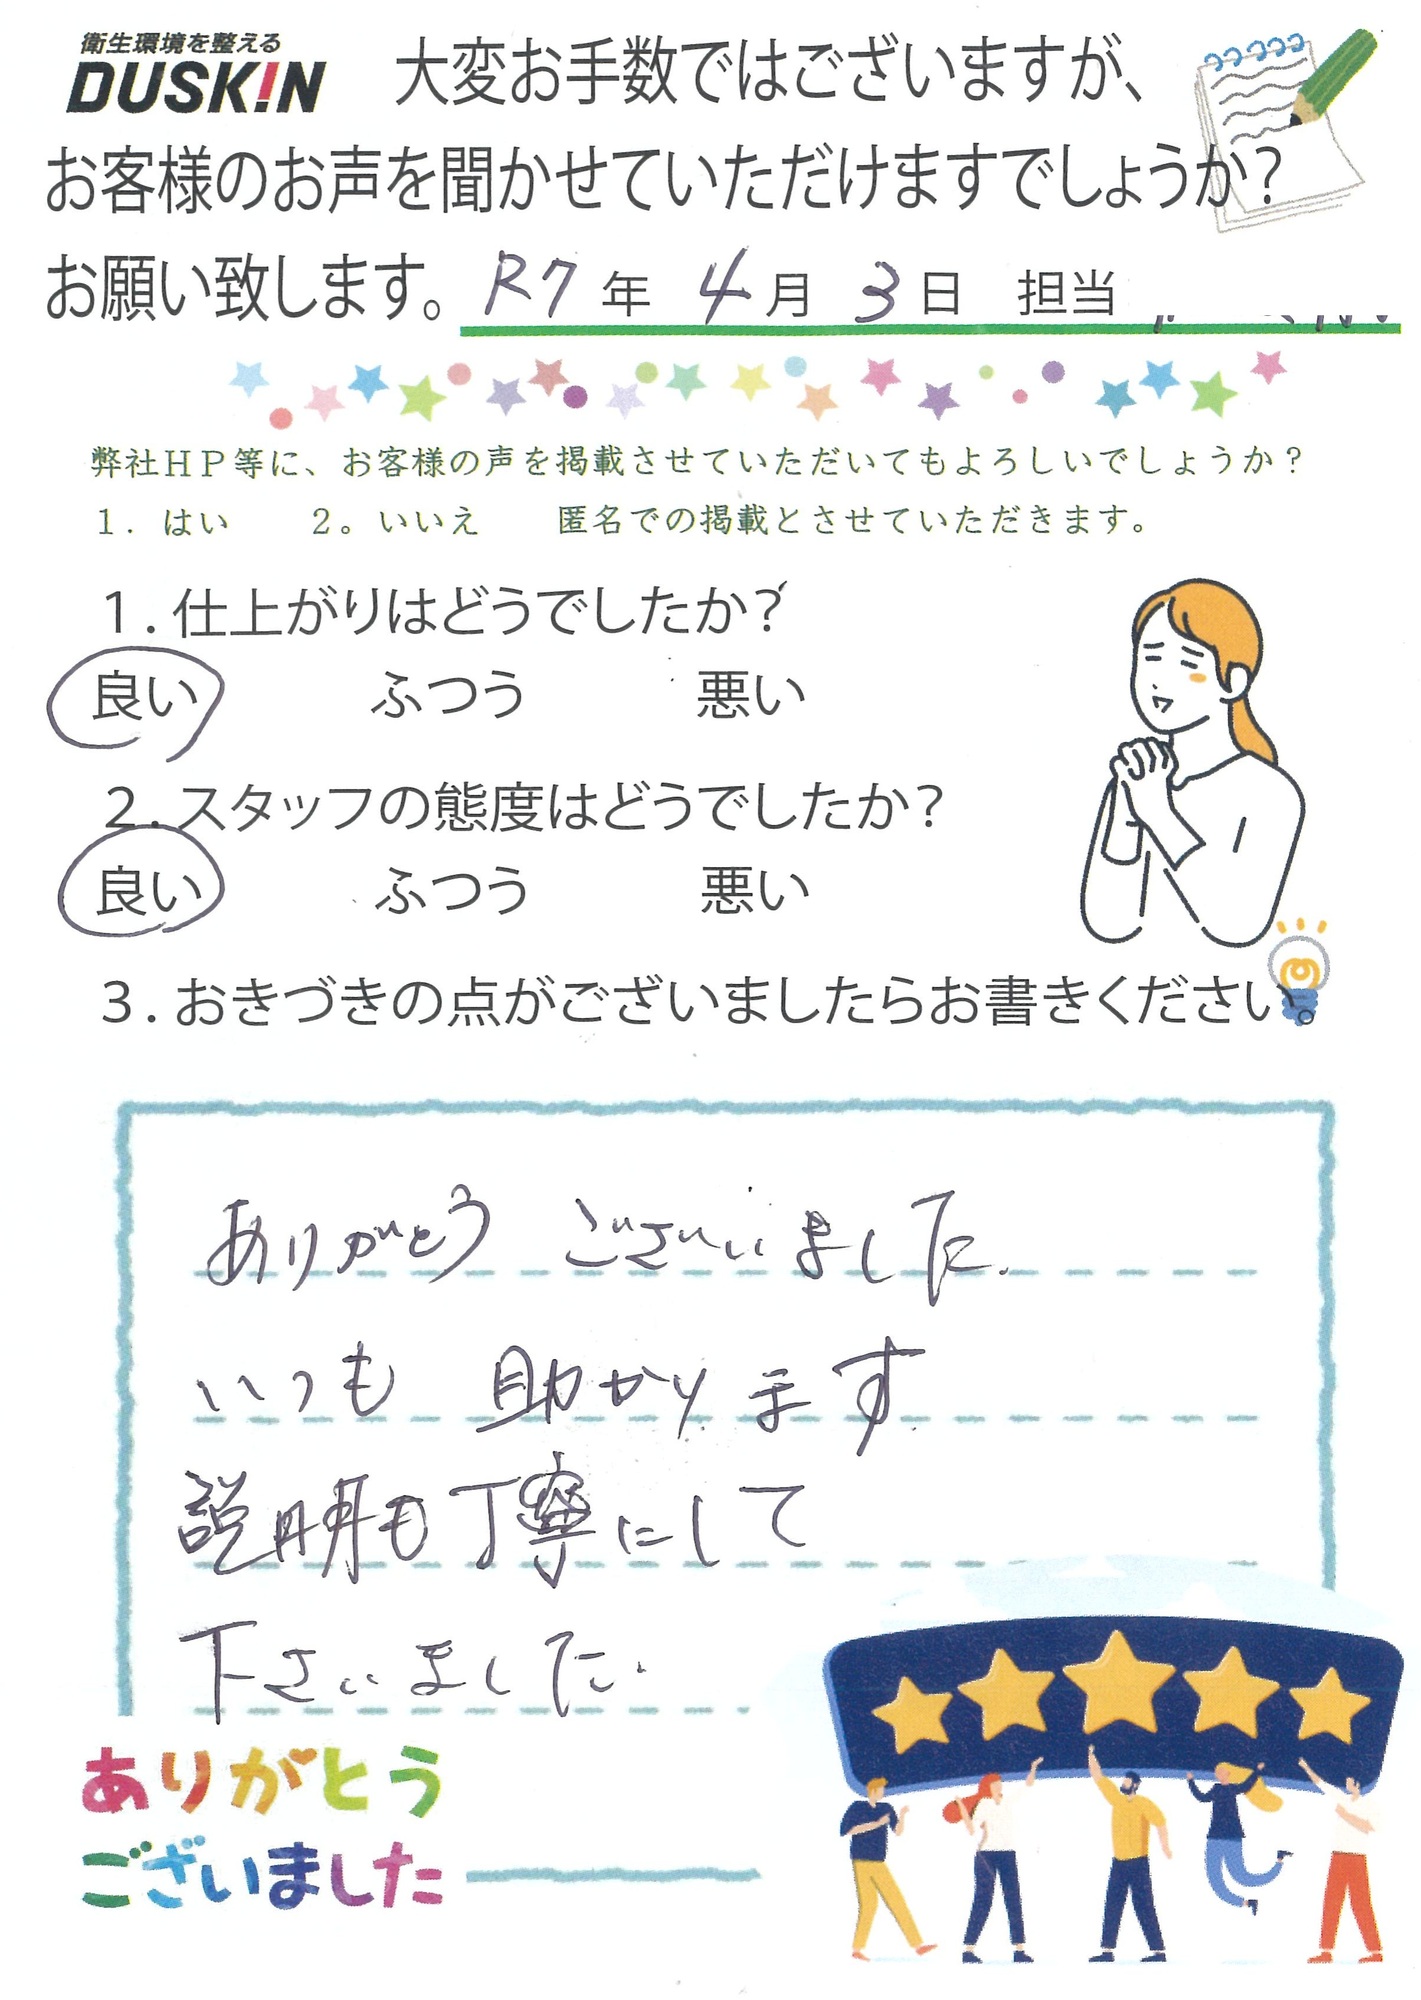 衛生環境を整える
DUSKIN 大変お手数ではございますが、
お客様のお声を聞かせていただけますでしょうか?
お願い致します。 R7年 4月 3日 担当
弊社HP等に、お客様の声を掲載させていただいてもよろしいでしょうか?
1. はい 2。いいえ 匿名での掲載とさせていただきます。
1.仕上がりはどうでしたか?
良い ふつう 悪い
2.スタッフの態度はどうでしたか?
良い ふつう 悪い
3.おきづきの点がございましたらお書きください。
ありがとう ございました.
いつも 助かります
説明も丁寧にして
下さいました.
ありがとう
ございました